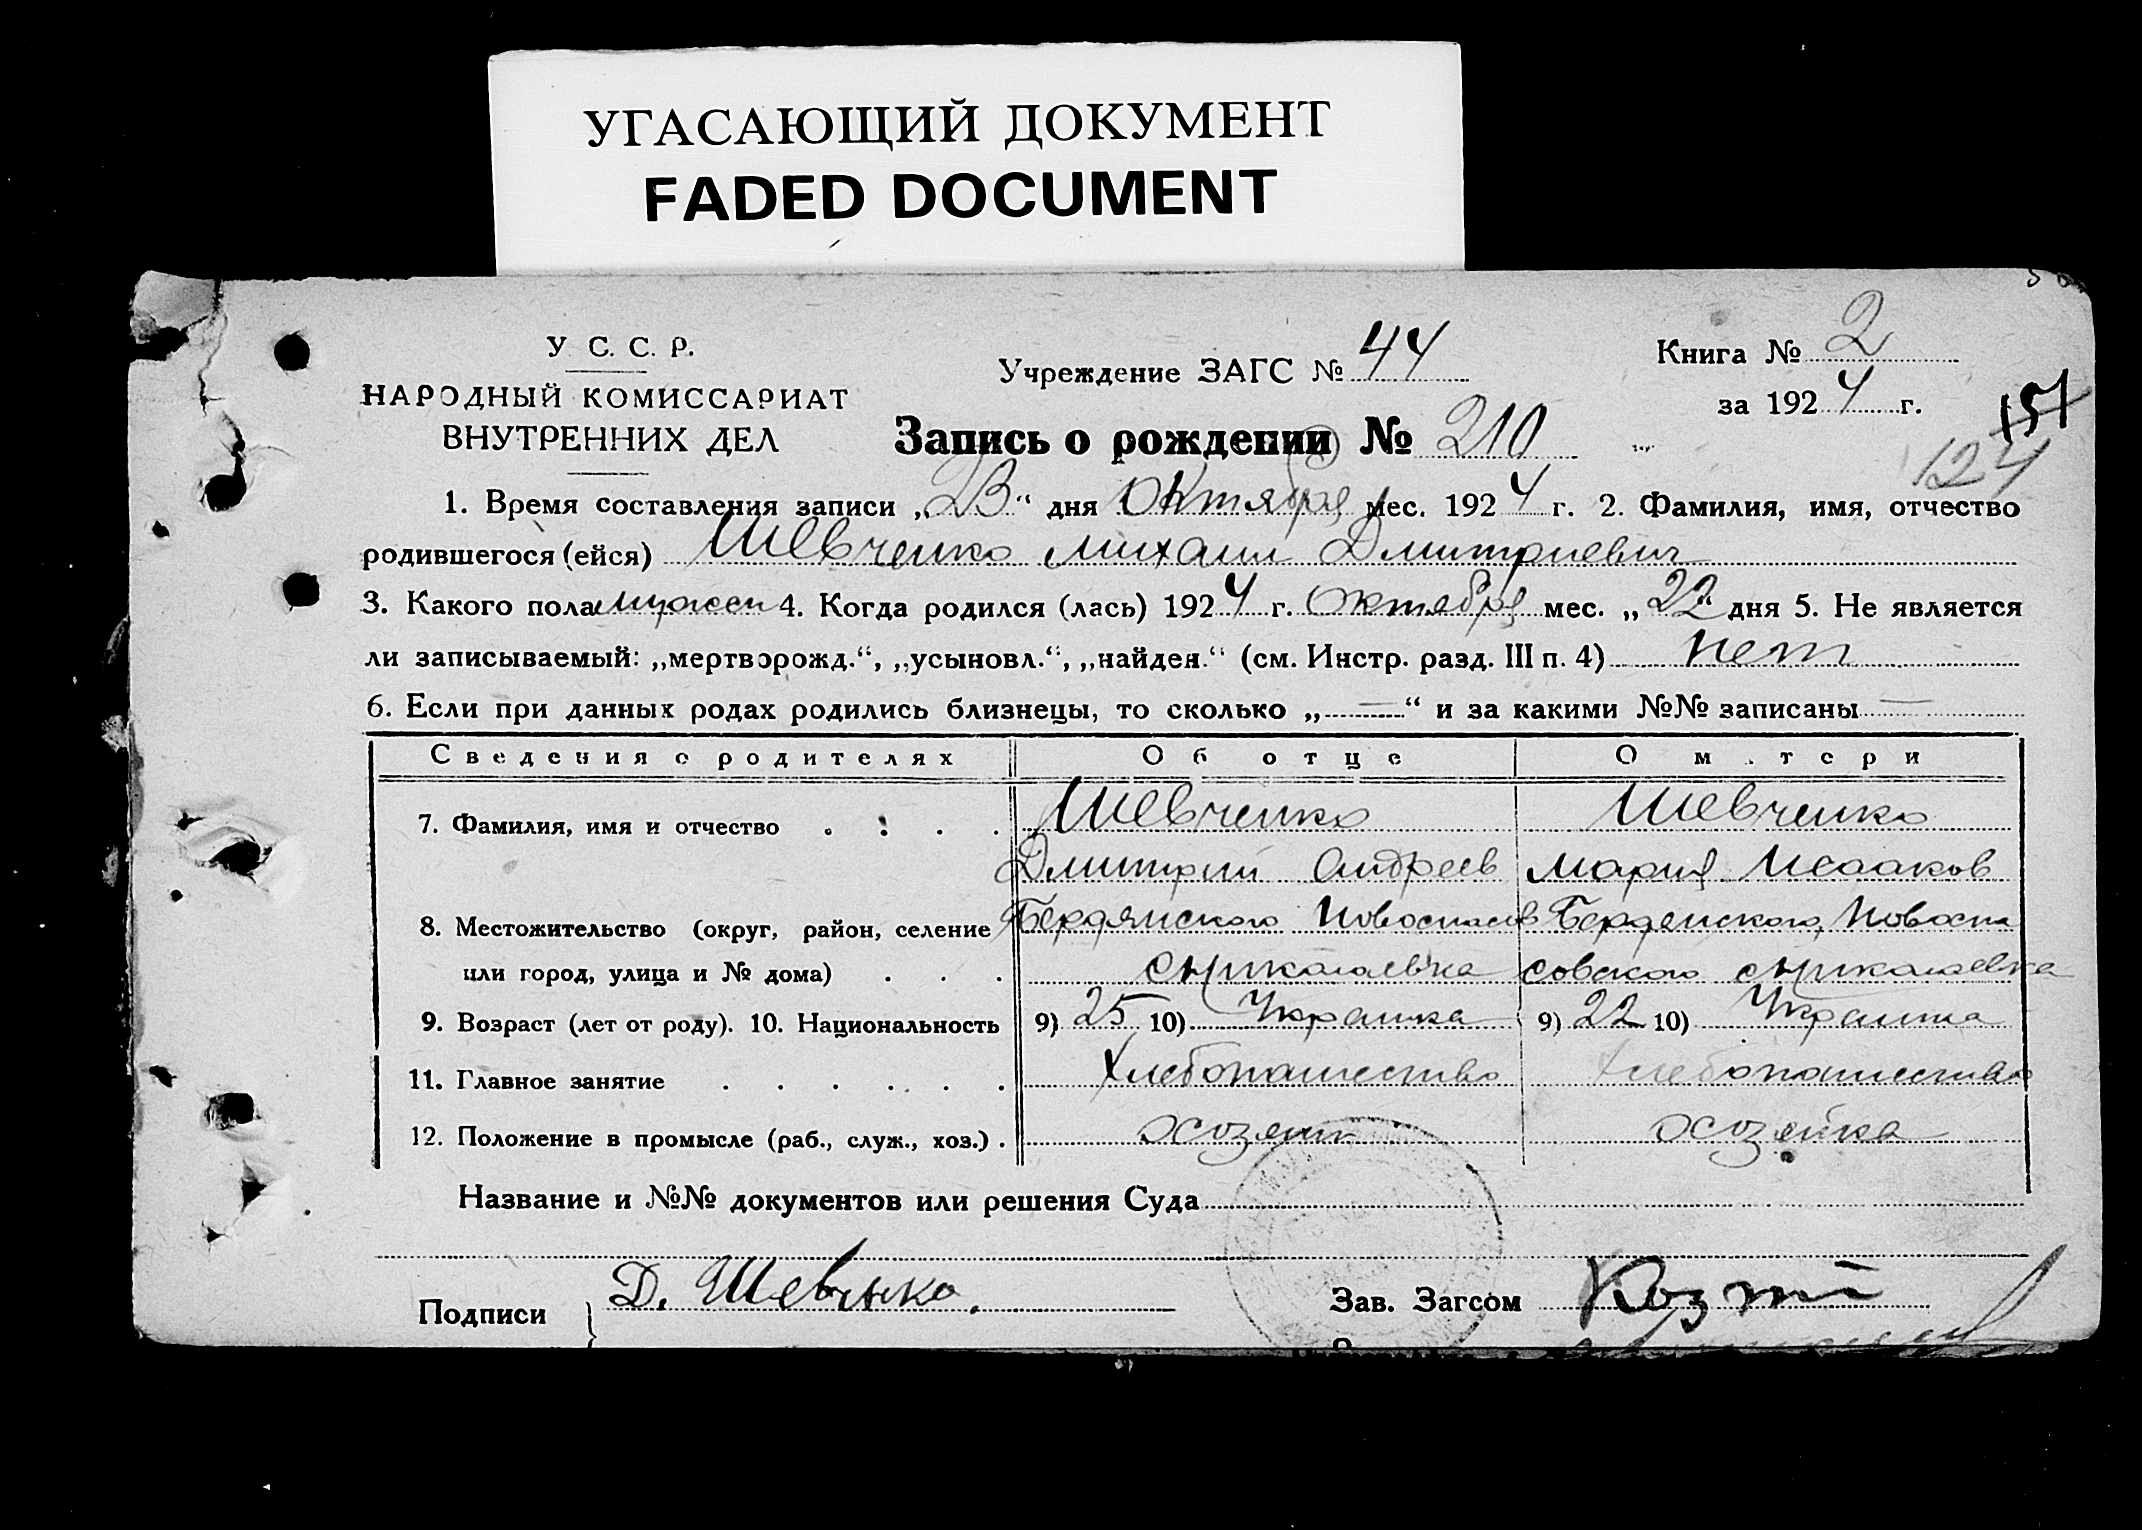 УГАСАЮЩИЙ ДОКУМЕНТ
FADED DOCUMENT
У. С. С. Р.
НАРОДНЫЙ КОМИССАРИАТ
ВНУТРЕННИХ ДЕЛ
Учреждение ЗАГС № 44
Книга № 2
за 1924 г.
151
124
Запись о рождении № 210
1. Время составления записи „23“ дня Октября мес. 1924 г. 2. Фамилия, имя, отчество
родившегося (ейся) Шевченко Михаил Дмитриевич
3. Какого пола мужски 4. Когда родился (лась) 1924 г. Октября мес. „22“ дня 5. Не является
ли записываемый: „мертворожд.“, „усыновл.“, „найден.“ (см. Инстр. разд. III п. 4) нет
6. Если при данных родах родились близнецы, то сколько „—“ и за какими №№ записаны —
Сведения о родителях Об отце О м.тери
7. Фамилия, имя и отчество . . . . Шевченко Шевченко
Дмитрий Андреев Мария Исааков
8. Местожительство (округ, район, селение Бердянского Новоспасов Бердянского Новоспа
или город, улица и № дома) . . . с Николаевка совского с Николаевка
9. Возраст (лет от роду). 10. Национальность 9) 25 10) Украинка 9) 22 10) Украинка
11. Главное занятие . . . . . . Хлебопашество Хлебопашество
12. Положение в промысле (раб., служ., хоз.) . хозяин хозяйка
Название и №№ документов или решения Суда
Подписи Д. Шевченко. Зав. Загсом